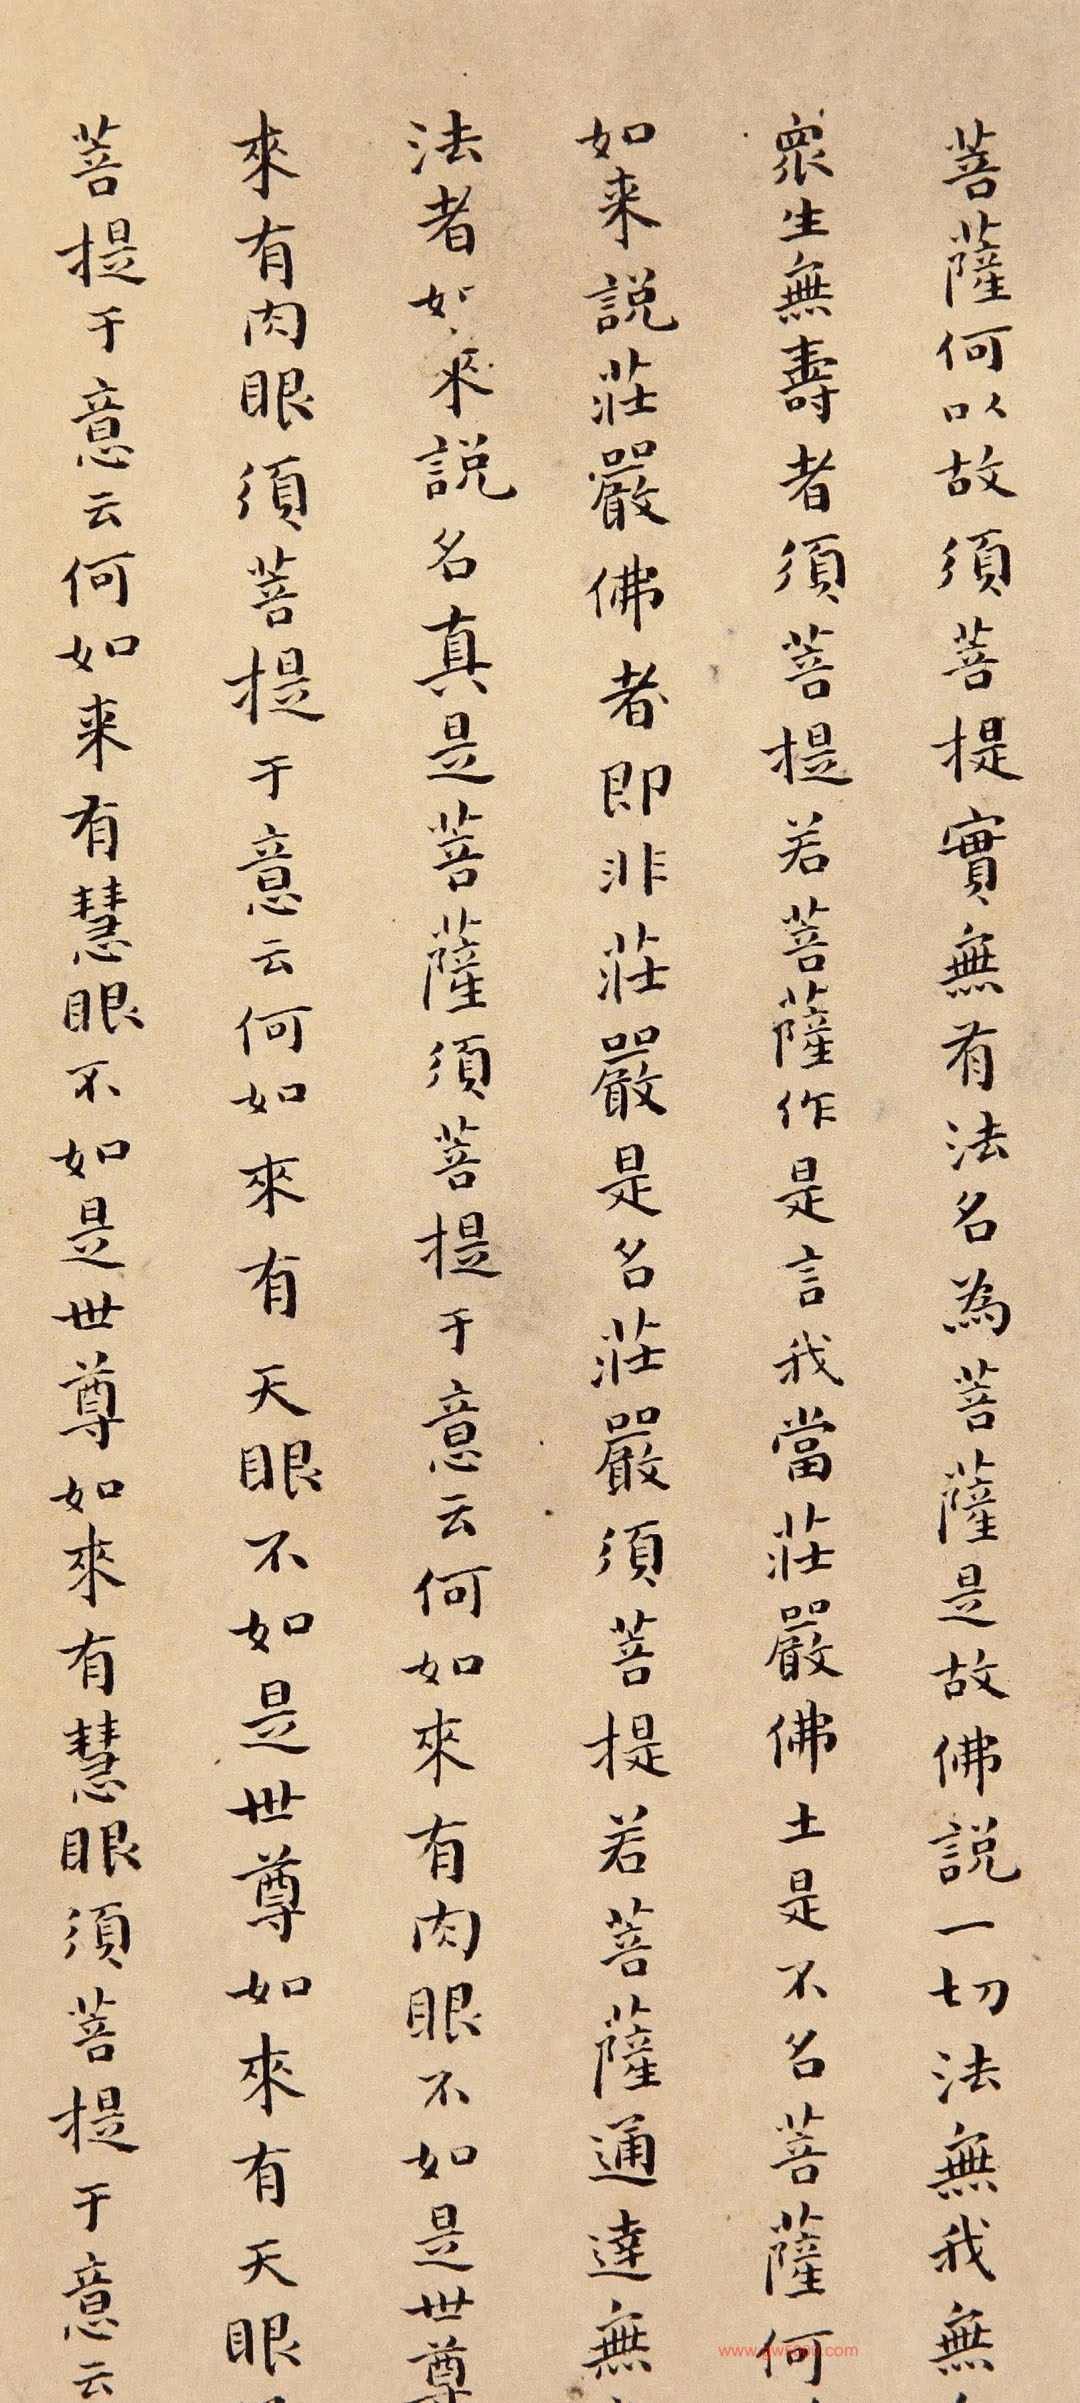 菩薩何以故須菩提實無有法名為菩薩是故佛說一切法無我無
眾生無壽者須菩提若菩薩作是言我當莊嚴佛土是不名菩薩何
如来說莊嚴佛者即非莊嚴是名莊嚴須菩提若菩薩通達無
法者如来說名真是菩薩須菩提于意云何如來有肉眼不如是世尊
來有肉眼須菩提于意云何如來有天眼不如是世尊如來有天眼
菩提于意云何如来有慧眼不如是世尊如來有慧眼須菩提于意云